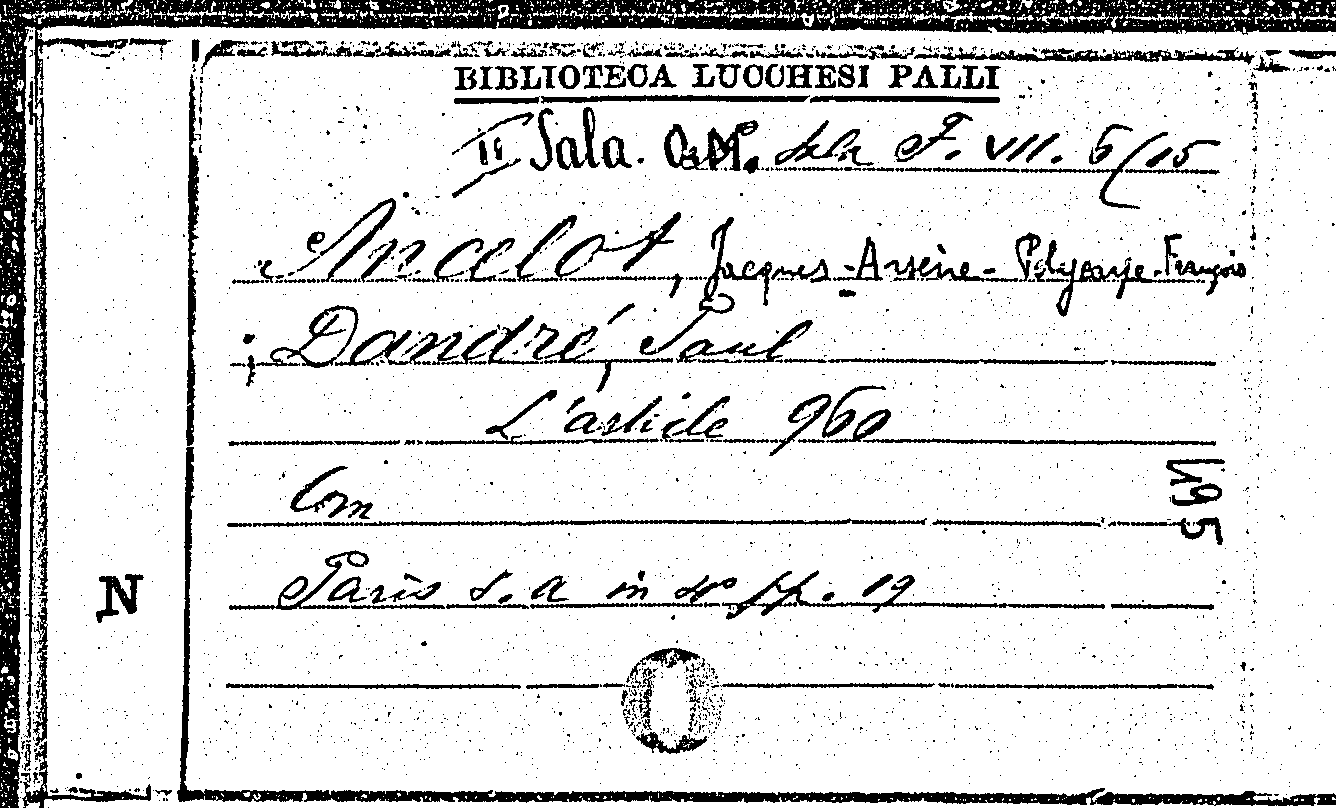 BIBLIOTECA LUCCHESI PALLI
II Sala. Sala F. VII. 5(15
Ancelot, Jacques-Arsène-Polycarpe-François
; Dandré, Paul
L'article 960
Com
195
Paris s.a in 4º pp. 19
N